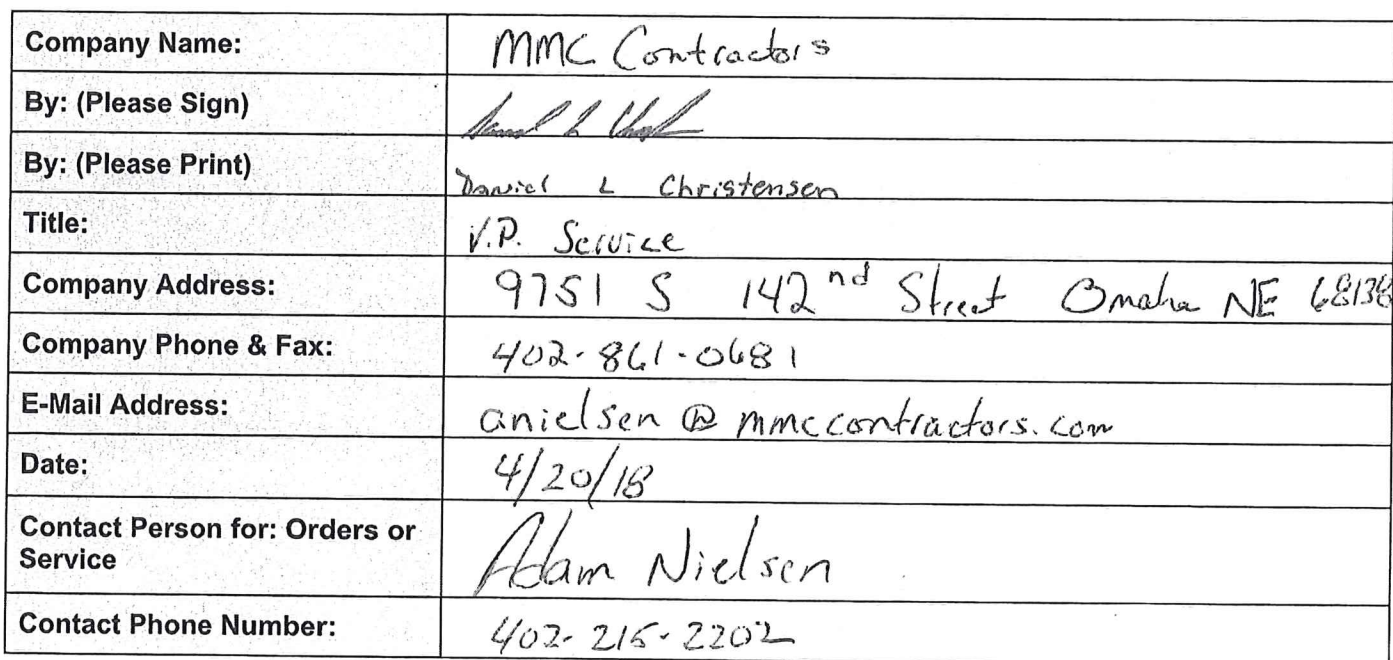 Company Name: MMC Contractors
By: (Please Sign)
By: (Please Print) Daniel L Christensen
Title: V.P. Service
Company Address: 9751 S 142nd Street Omaha NE 68138
Company Phone & Fax: 402-861-0681
E-Mail Address: anielsen@mmccontractors.com
Date: 4/20/18
Contact Person for: Orders or
Service Adam Nielsen
Contact Phone Number: 402-215-2202